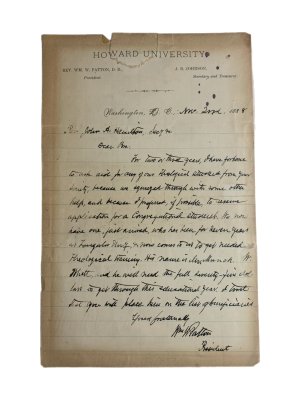 HOWARD UNIVERSITY,
REV. WM. W. PATTON, D. D., J. B. JOHNSON,
President. Secretary and Treasurer.
Washington, D. C., Nov. 22nd, 188
Rev. John A. Hamilton, Sec'y
Dear Bro.
For two or three years, I have forborne
to ask aid for any given theological student from your
Society because we squeezed through with some other
help, and because I preferred, if possible, to reserve
application for a Congregational student. We now
have one, just arrived, who has been for seven years
at Univ. & now comes to us to get needed
theological training. His name is
and he will need the full seventy-five dol-
lars to get through this educational year. I trust
that you will place him on the list of beneficiaries
Yours fraternally
Wm W Patton
President